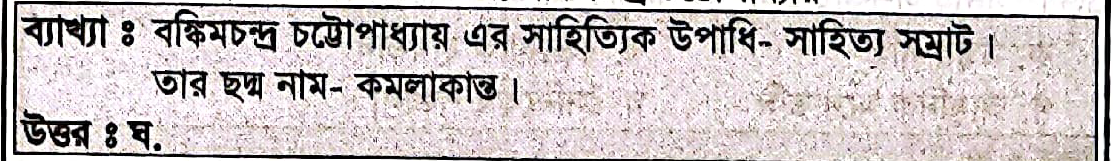 ব্যাখ্যা ঃ বঙ্কিমচন্দ্র চট্টোপাধ্যায় এর সাহিত্যিক উপাধি- সাহিত্য সম্রাট।
তার ছদ্ম নাম- কমলাকান্ত।
উত্তর ঃ ঘ.